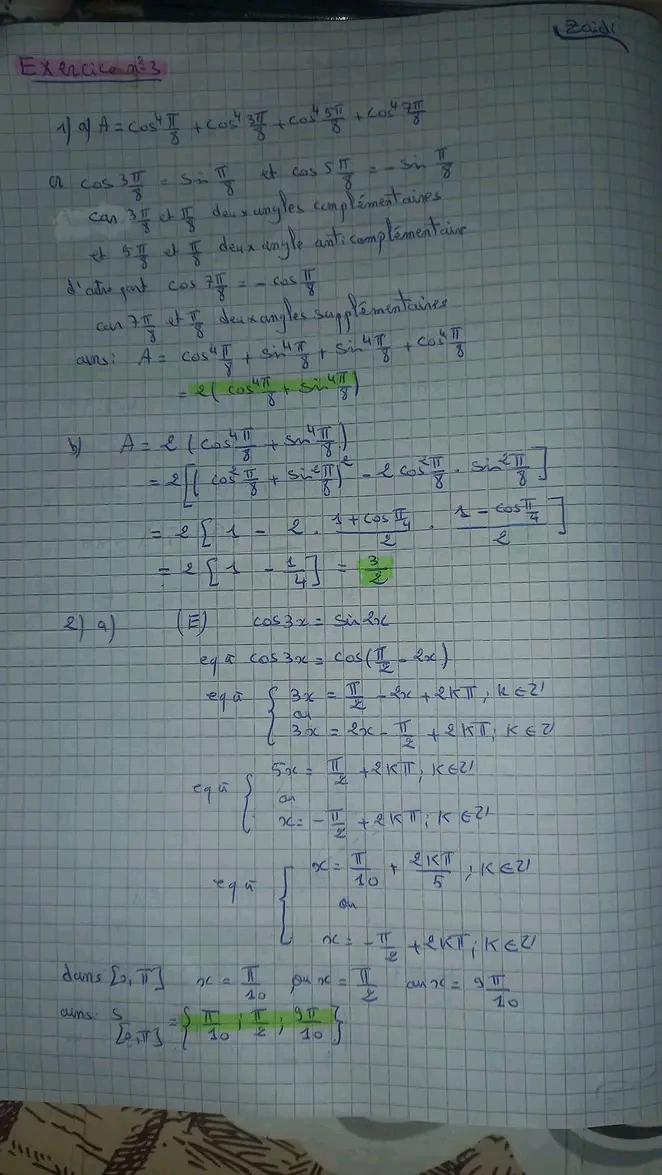 Zaidi
Exercice n°3
1) a) A = cos⁴ π/8 + cos⁴ 3π/8 + cos⁴ 5π/8 + cos⁴ 7π/8
or cos 3π/8 = sin π/8 et cos 5π/8 = - sin π/8
car 3π/8 et π/8 deux angles complémentaires
et 5π/8 et π/8 deux angle anticomplémentaire
d'autre part cos 7π/8 = - cos π/8
car 7π/8 et π/8 deux angles supplémentaires
ainsi A = cos⁴ π/8 + sin⁴ π/8 + sin⁴ π/8 + cos⁴ π/8
= 2( cos⁴ π/8 + sin⁴ π/8 )
b) A = 2 ( cos⁴ π/8 + sin⁴ π/8 )
= 2[ ( cos² π/8 + sin² π/8 )² - 2 cos² π/8 . sin² π/8 ]
= 2 [ 1 - 2 . (1 + cos π/4)/2 . (1 - cos π/4)/2 ]
= 2 [ 1 - 1/4 ] = 3/2
2) a) (E) cos 3x = sin 2x
eq à cos 3x = cos( π/2 - 2x )
eq à { 3x = π/2 - 2x + 2Kπ ; K ∈ Z
ou
3x = 2x - π/2 + 2Kπ ; K ∈ Z
eq à { 5x = π/2 + 2Kπ ; K ∈ Z
ou
x = - π/2 + 2Kπ ; K ∈ Z
eq à { x = π/10 + 2Kπ/5 ; K ∈ Z
ou
x = - π/2 + 2Kπ ; K ∈ Z
dans [0, π] x = π/10 ou x = π/2 ou x = 9π/10
ains: S [0, π] = { π/10 ; π/2 ; 9π/10 }